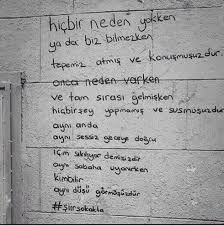 hiçbir neden yokken
ya da biz bilmezken
tepemiz atmış ve konuşmuşuzdur.
onca neden varken
ve tam sırası gelmişken
hiçbirşey yapmamış ve susmuşuzdur
aynı anda
aynı sessiz geceye doğru
içim sıkılıyor demişizdir
aynı sabaha uyanırken
kimbilir
aynı düşü görmüşüzdür
#şiirsokakta